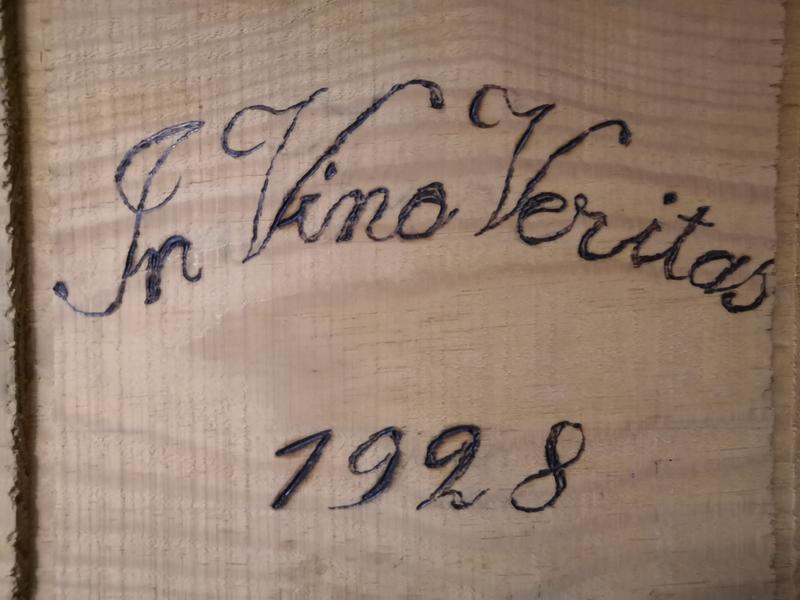 In Vino Veritas
1928